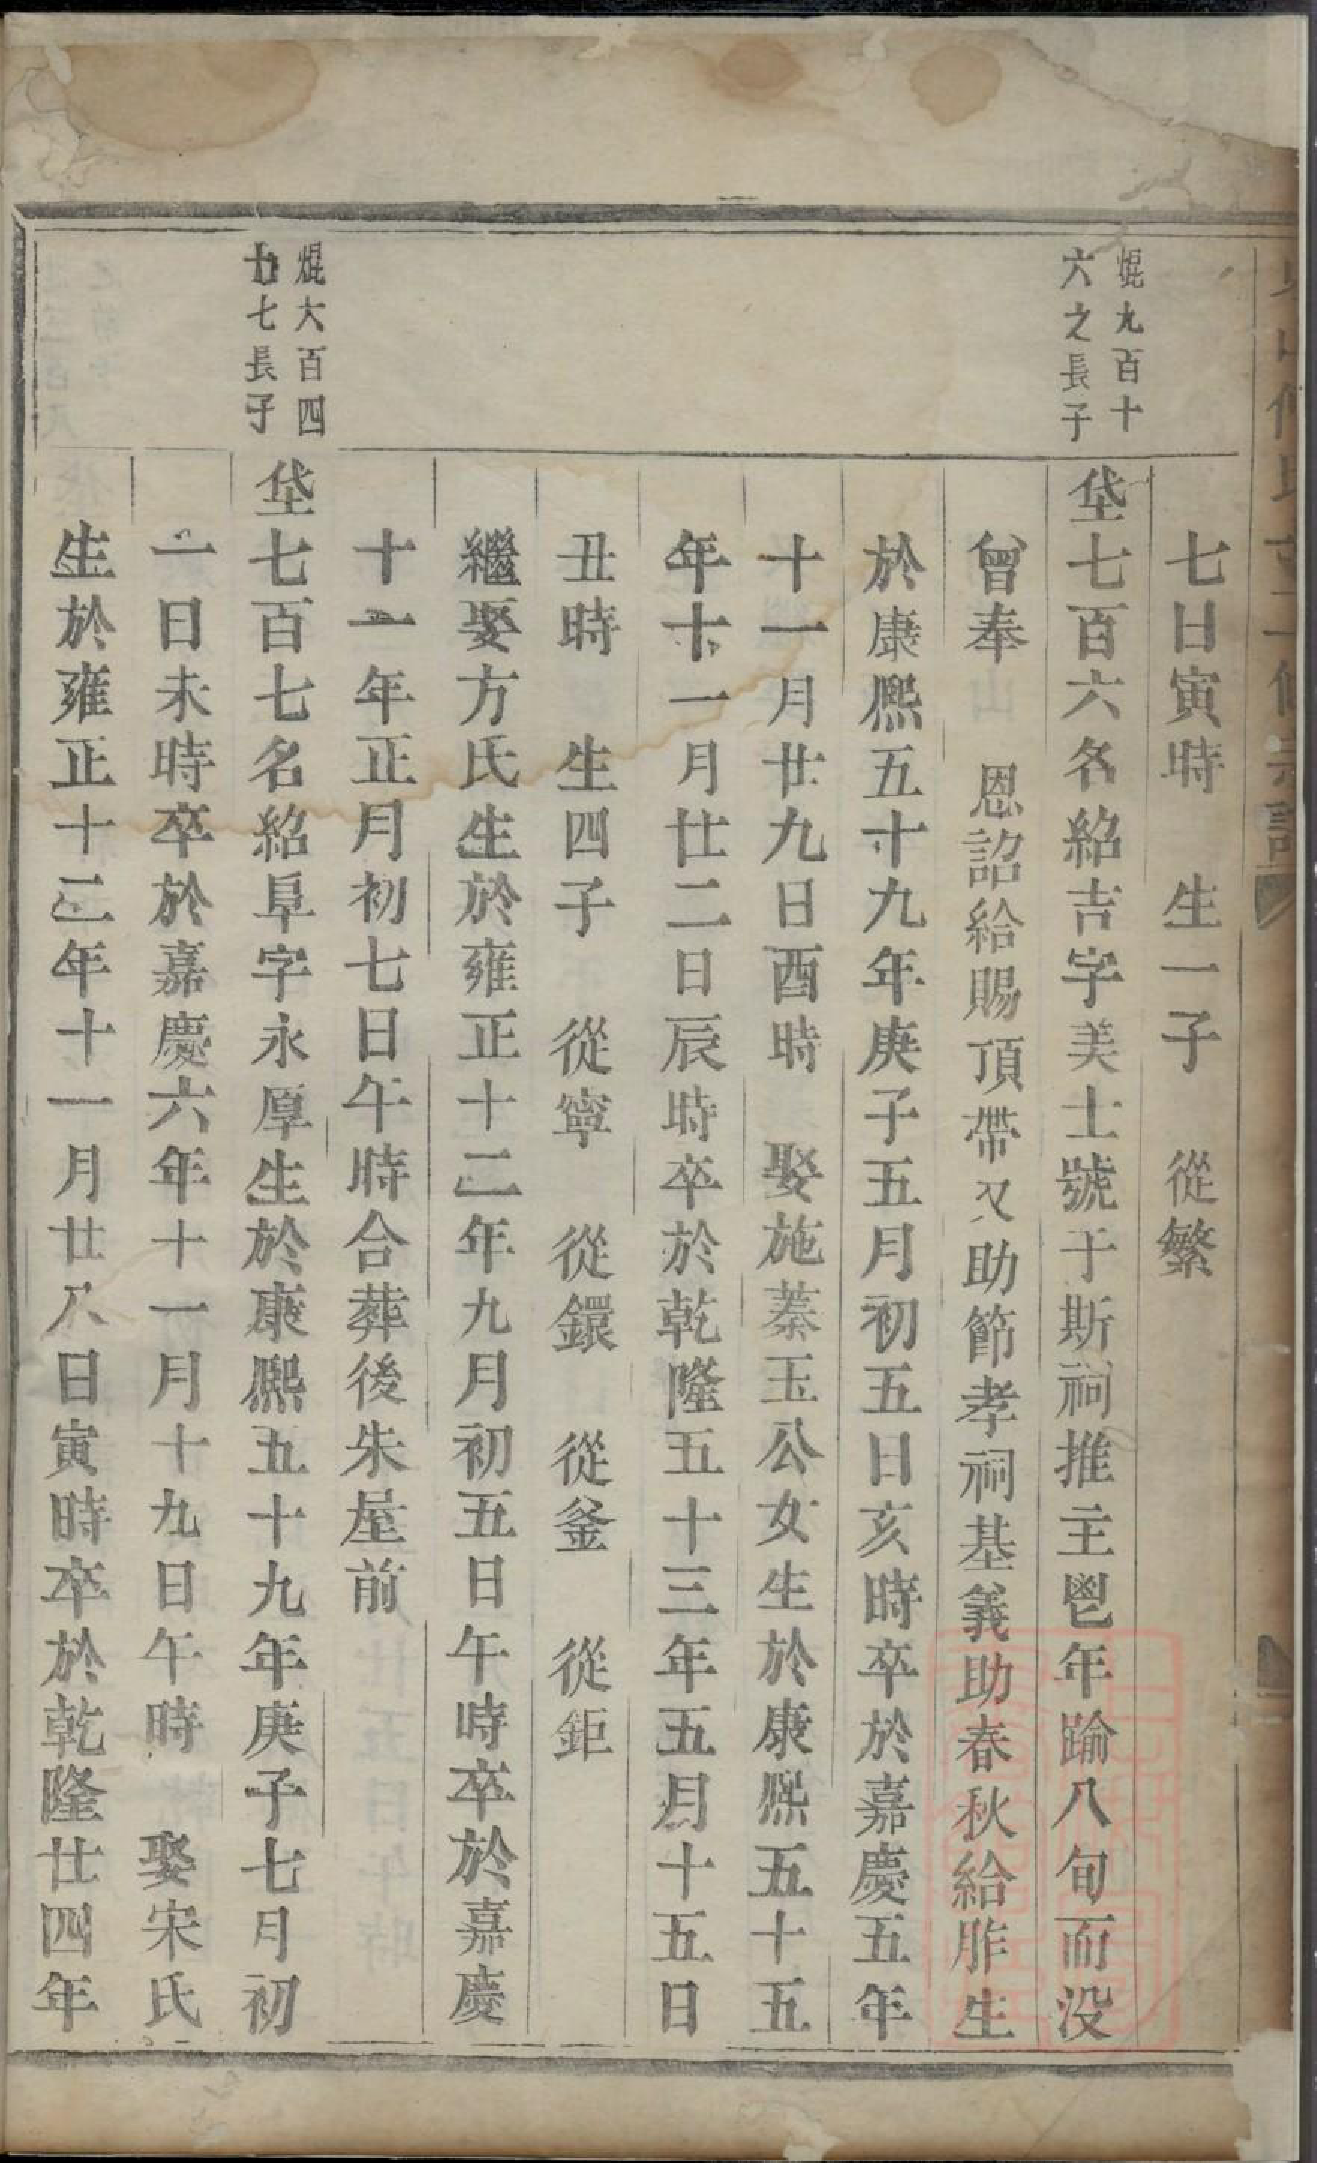 七日寅時　生一子　從繁
焜九百十
六之長子
垡七百六名紹吉字美士號于斯祠推主鬯年踰八旬而没
曾奉　恩詔給賜頂帶又助節孝祠基義助春秋給胙生
於康熙五十九年庚子五月初五日亥時卒於嘉慶五年
十一月廿九日酉時　娶施蓁玉公女生於康熙五十五
年十一月廿二日辰時卒於乾隆五十三年五月十五日
丑時　生四子　從寧　從鐶　從釜　從鉅
繼娶方氏生於雍正十二年九月初五日午時卒於嘉慶
十一年正月初七日午時合葬後朱屋前
焜大百四
七長子
垡七百七名紹阜字永厚生於康熙五十九年庚子七月初
一日未時卒於嘉慶六年十一月十九日午時　娶宋氏
生於雍正十三年十一月廿八日寅時卒於乾隆廿四年